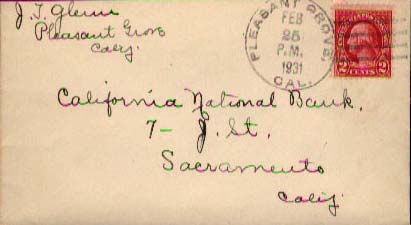 J. T. Glenn
Pleasant Grove
Calif.
PLEASANT GROVE,
FEB
25
P.M.
1931
CAL.
2 CENTS 2
California National Bank.
7- J. St.
Sacramento
Calif.